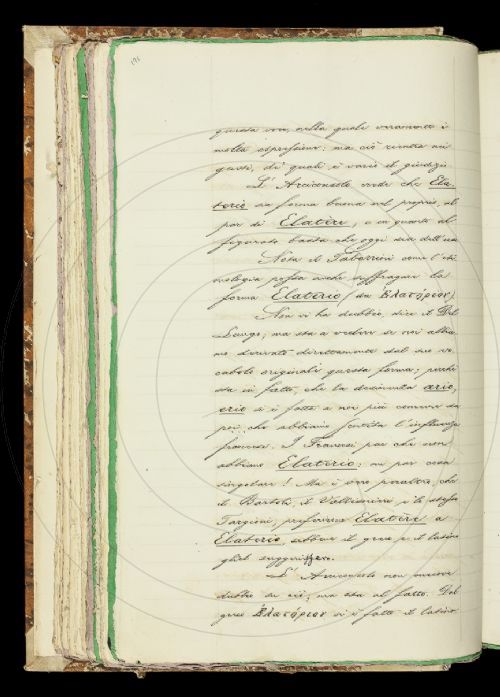 191
questa voce, nella quale veramente è
molta espressione; ma ciò rientra nei
gusti, de' quali è vario il giudizio.
L'Arciconsolo crede che Ela-
terio sia forma buona nel proprio, al
par di Elatère, e in quanto al
figurato basta che oggi sia dell'uso
Nota il Tabarrini come l'eti-
mologia possa anche suffragare la
forma Elaterio (da Ἐλατήριον).
Non vi ha dubbio, dice il Del
Lungo, ma sta a vedere se noi abbia-
mo derivato direttamente dal suo vo-
cabolo originale questa forma; perchè
sta in fatto, che la desinenza ario,
erio si è fatta a noi più comune da
poi che abbiamo sentita l'influenza
francese. I Francesi par che non
abbiano Elaterio: ve' par cosa
singolare! Ma è vero peraltro, che
il Bartoli, il Vallisnieri, e lo stesso
Targioni, preferirono Elatère a
Elaterio, sebbene il greco e il latino
gliel suggerissero.
L'Arciconsolo non muove
dubbi su ciò, ma sta al fatto. Dal
greco Ἐλατήριον si è fatto il latino